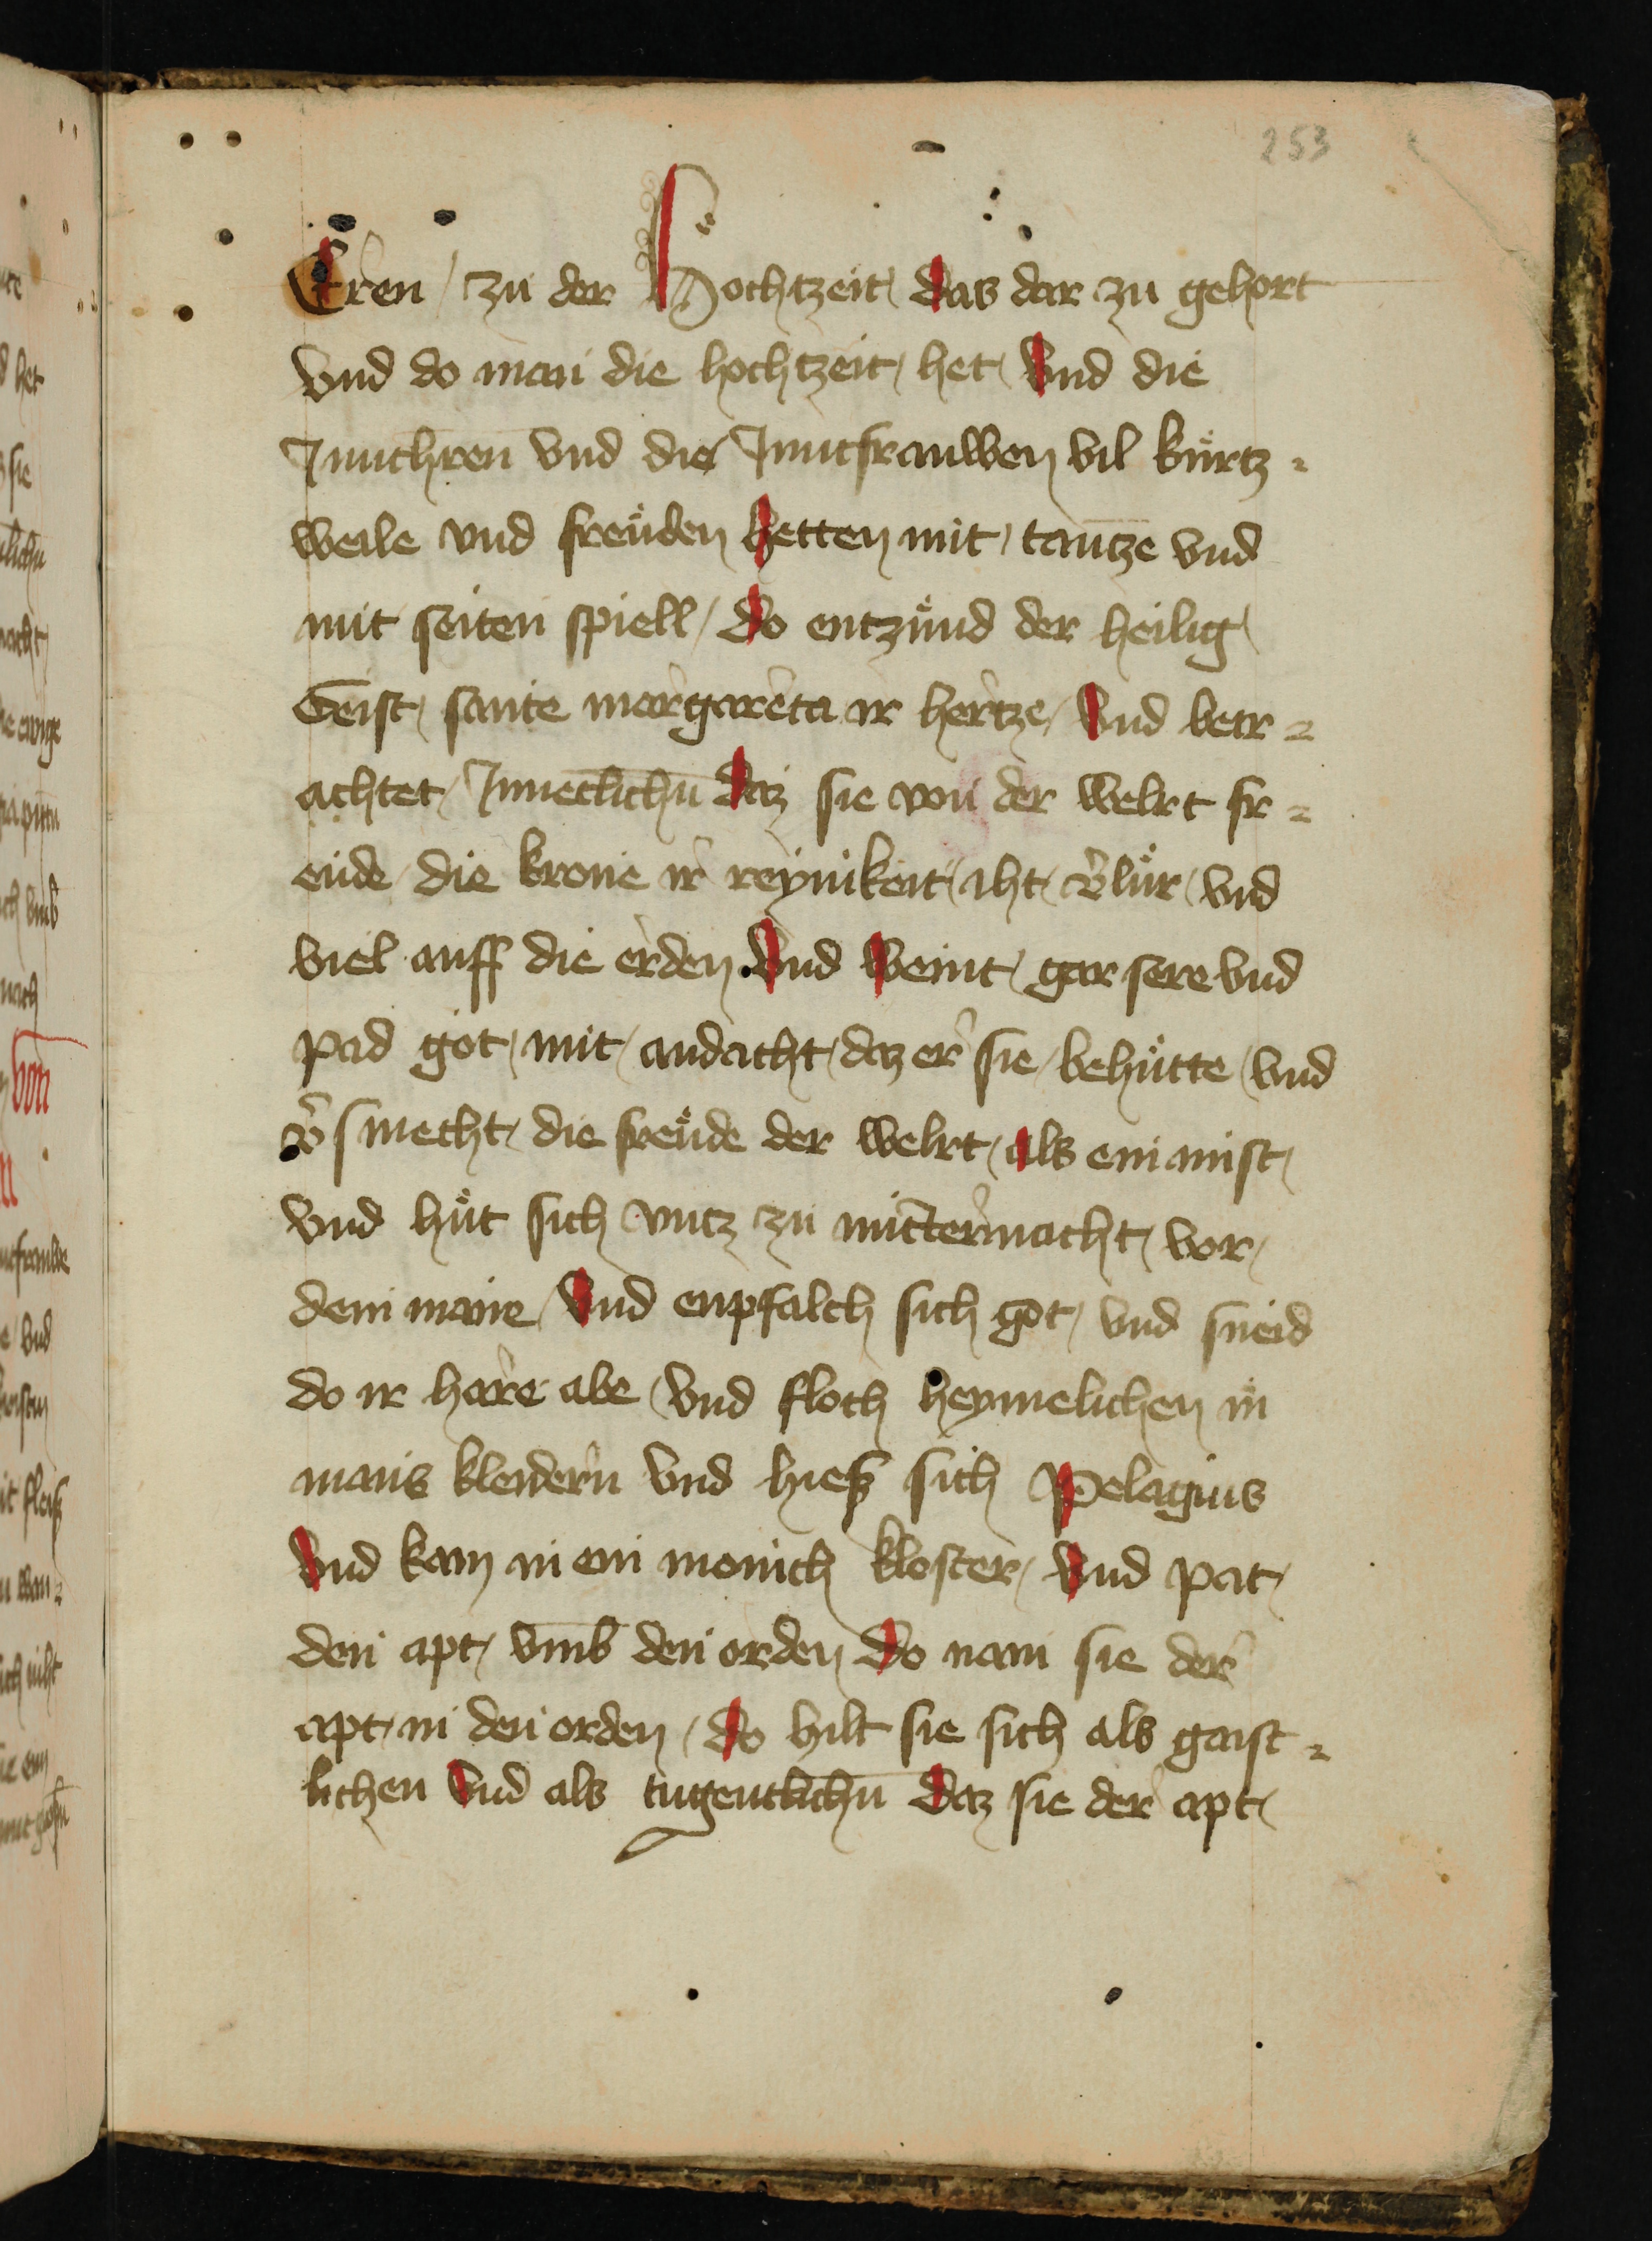 253
Eren / zu der Hochtzeit das dar zu gehort
vnd do man die hochtzeit het Vnd die
Junchren vnd die Juncfrauwen vil kürtz=
weile vnd freüden hetten mit tantze vnd
mit seiten spiell / do entzünd der heilig
Geist sante margareta ir hertze / Vnd betr=
achtet Jnneclichn̄ daz sie von der welrt fr=
eude die krone ir reynikeit iht v̾lür vnd
viel auff die erden Vnd Weint gar sere vnd
pad got mit andacht daz er sie behütte vnd
v̾smecht die freüde der welrt als ein mist
vnd hüt sich vntz zu mitternacht vor
dem mane Vnd enpfalch sich got vnd sneid
do ir hare abe vnd floch heymelichen in
mans kleydern vnd hieß sich Pelagius
Vnd kam in ein monich kloster / Vnd pat
den apt vmb den orden Do nam sie der
apt in den orden / do hilt sie sich als gaist=
lichen Vnd als tugentlichn̄ daz sie der apt